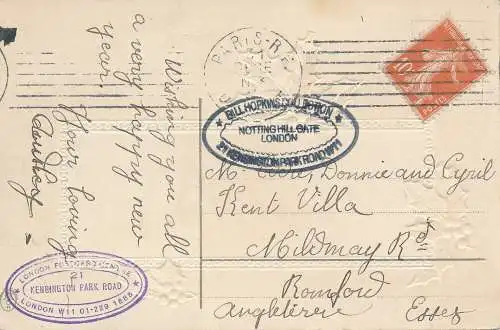 Wishing you all
a very happy new
year.
Your loving
PARIS-R.P.
10
BILL HOPKINS COLLECTION
NOTTING HILL GATE
LONDON
21 KENSINGTON PARK ROAD W11
Donnie and Cyril
Kent Villa
Mildmay Rd
Romford
Angleterre Essex
21
KENSINGTON PARK ROAD
LONDON W11 01-229 1888